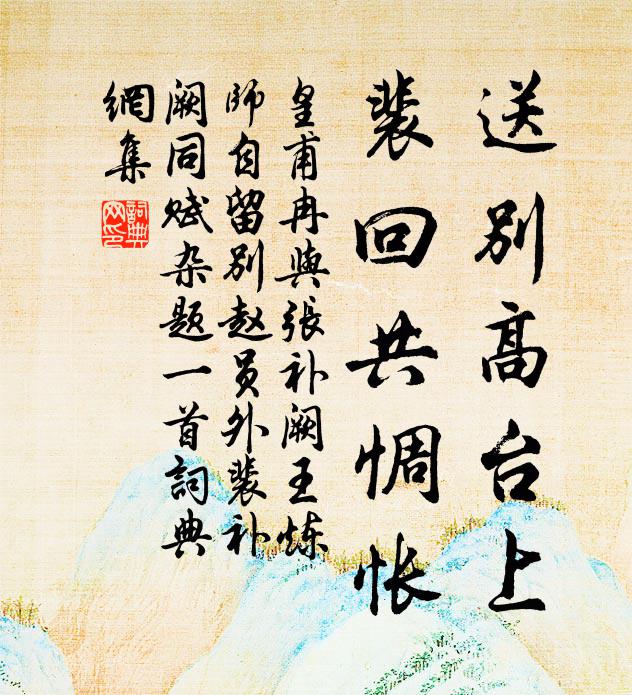 送别高台上
裴回共惆怅
皇甫冉與張补阙王炼
師自留别赵员外裴补
阙同赋杂题一首詞典
網集
詞典網印